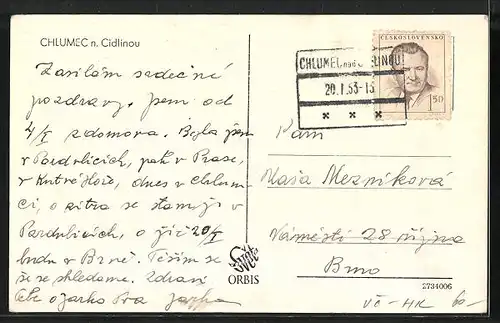 CHLUMEC n. Cidlinou
Zasílám srdečné
pozdravy. Jsem od
4/I z domova. Byla jsem
v Pardubicích, pak v Praze,
v Kutné Hoře, dnes v Chlum-
ci, o zítra se stavuji v
Pardubicích, a již 20/I
budu v Brně. Těším se
že se shledáme. Zdraví
Tebe a Jarka
ČESKOSLOVENSKO
1,50
CHLUMEC nad CIDLINOU 1
20.1.53-13
× × ×
Paní
Máša Mezníková
Náměstí 28 října
Brno
ORBIS
2734006
VČ-HK 60-